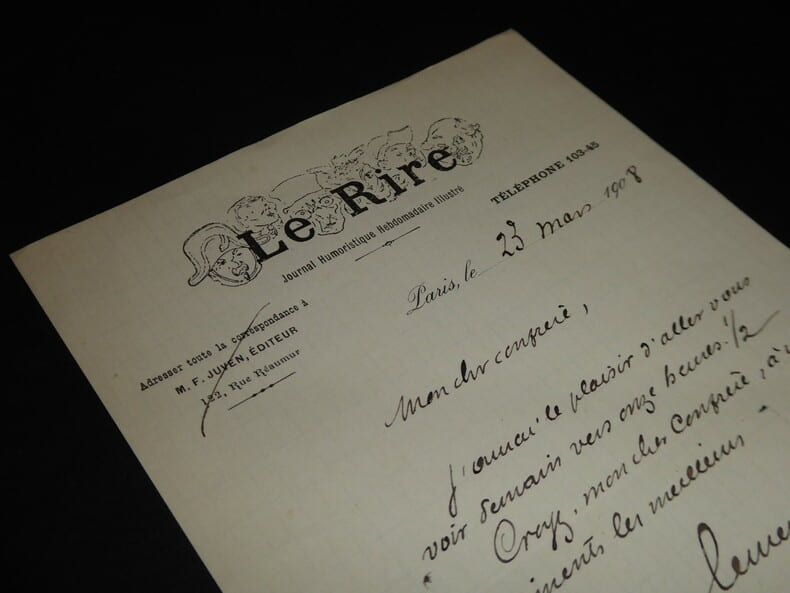 Le Rire
Journal Humoristique Hebdomadaire Illustré
TÉLÉPHONE 103-45
Paris, le 23 mars 1908
Adresser toute la correspondance à
M. F. JUVEN, ÉDITEUR
122, Rue Réaumur
Mon cher confrère,
J'aurai le plaisir d'aller vous
voir demain vers onze heures 1/2
Croyez, mon cher confrère, à
les meilleurs